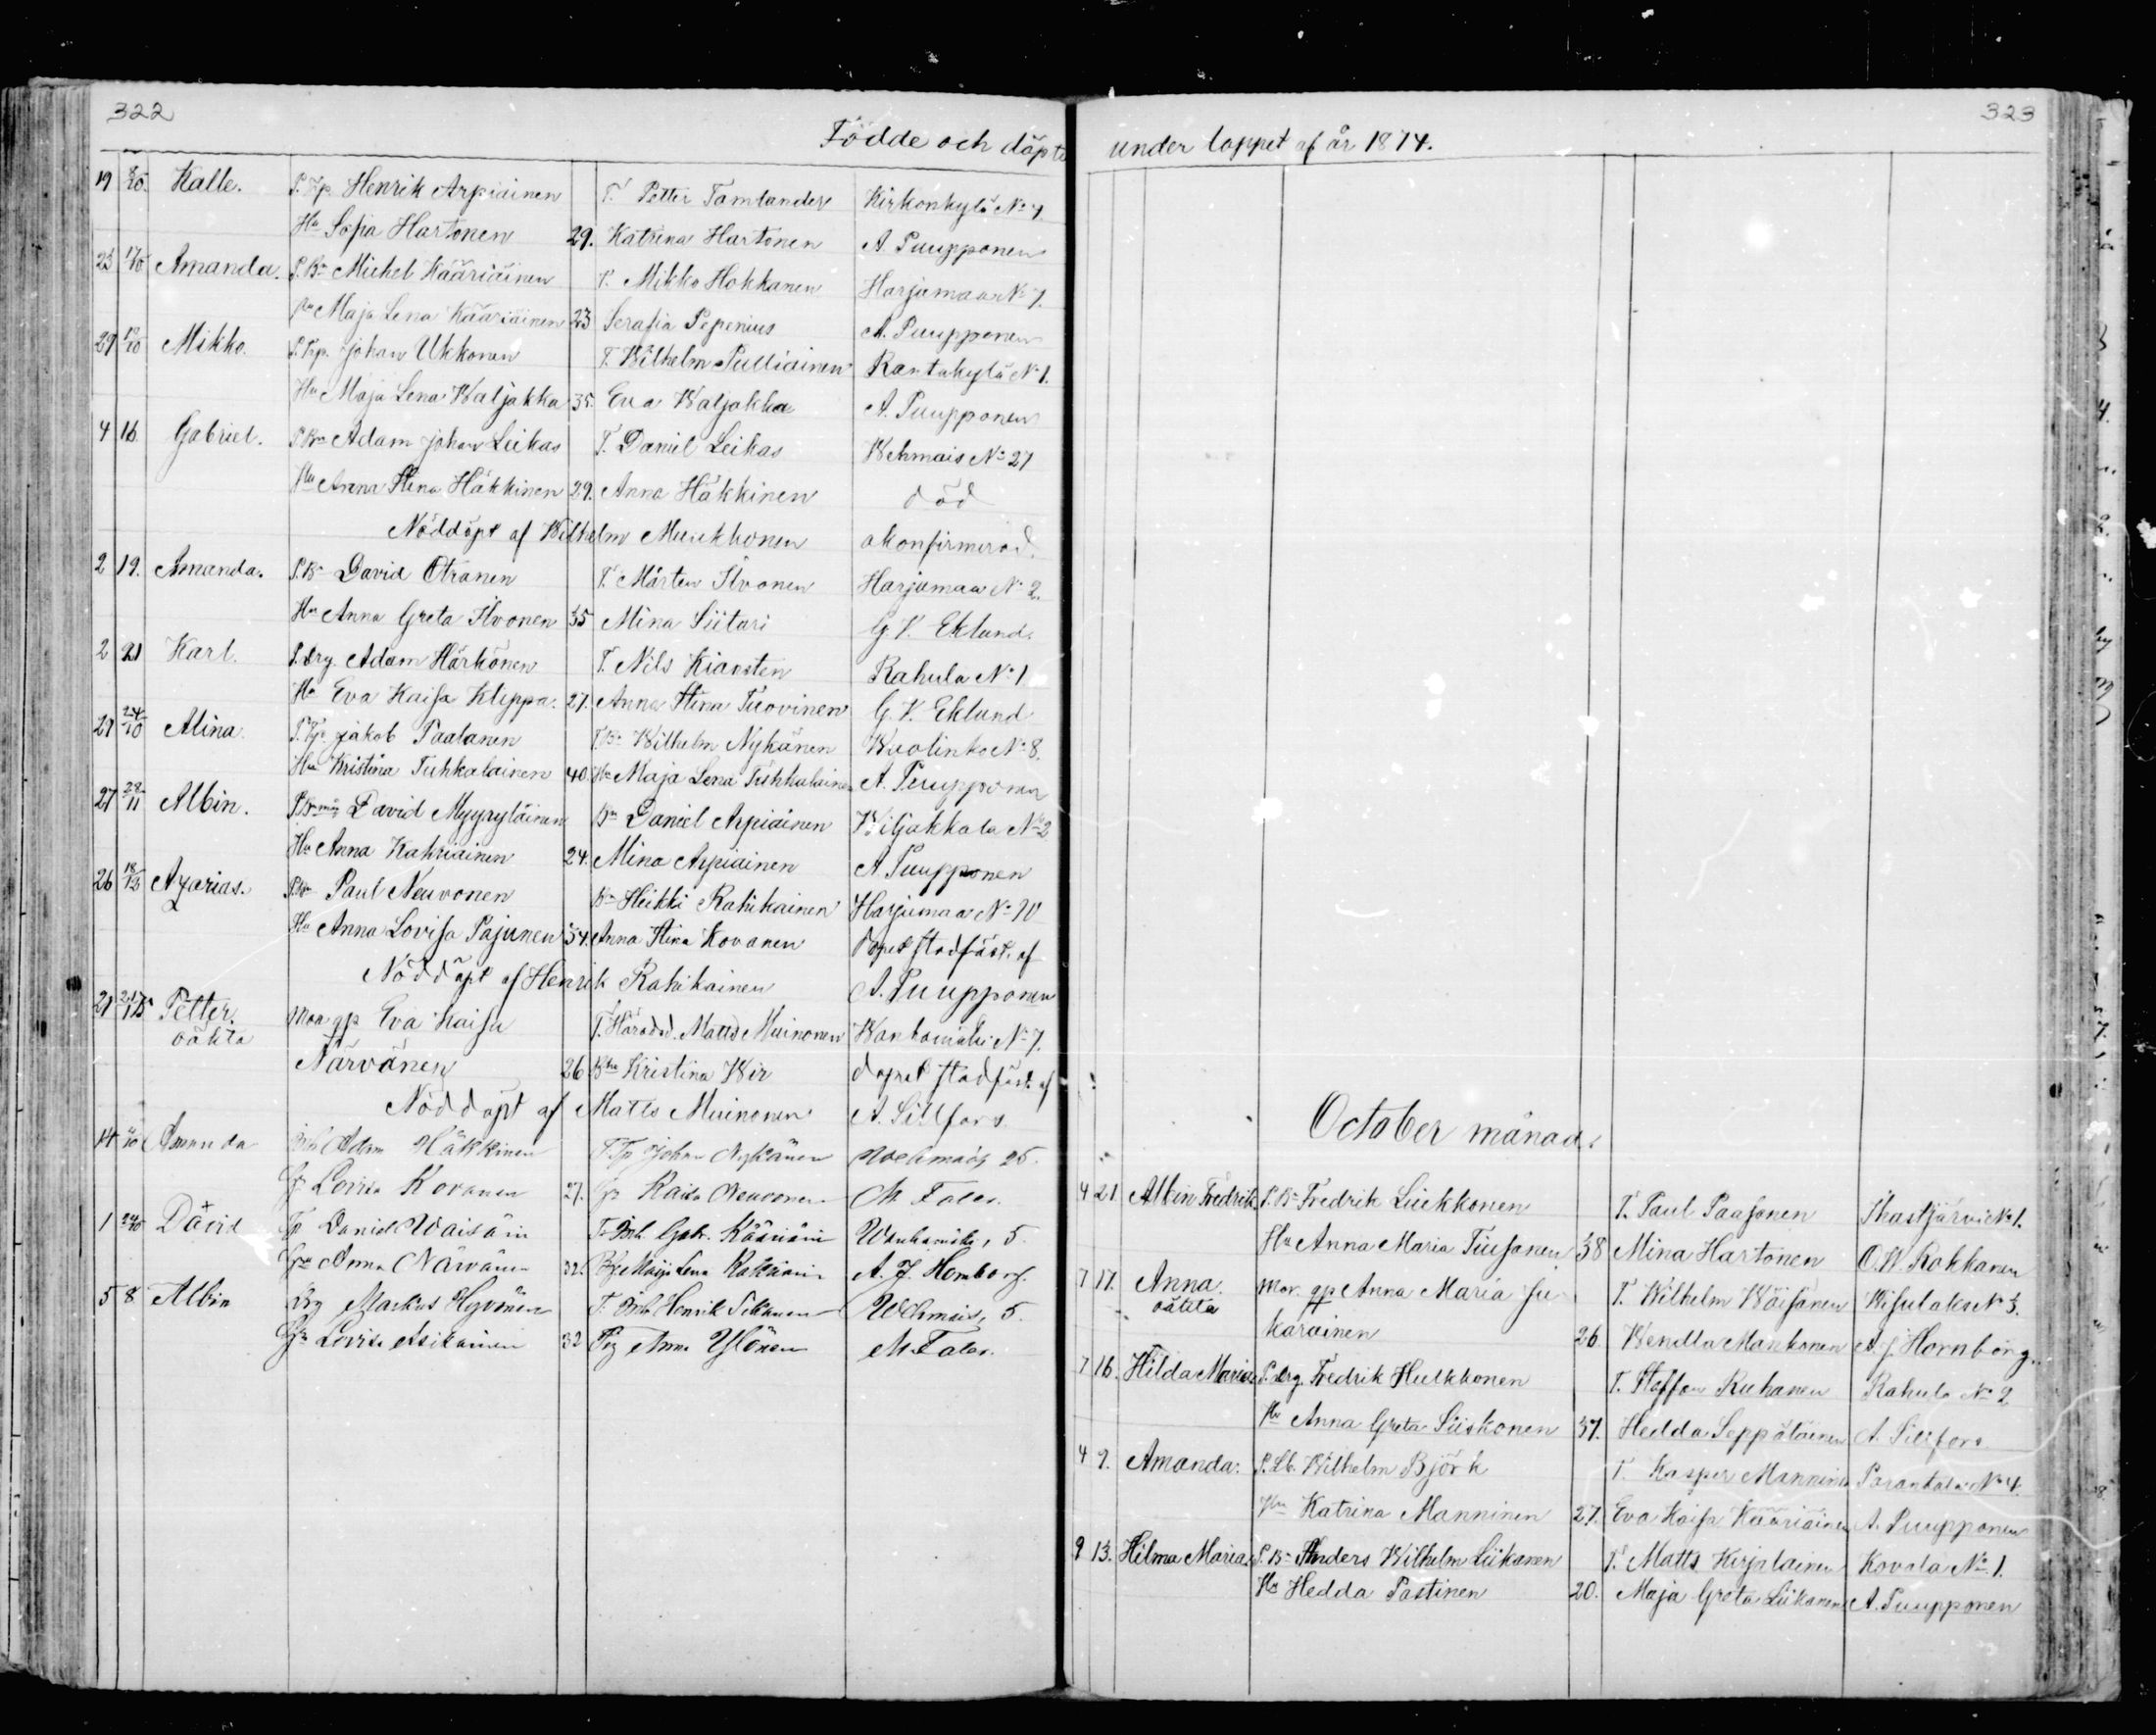 322
Födde och döpte
19 8/10. Kalle. S. Tp. Henrik Arpiainen T. Petter Tamlander Kirkonkylä No 7.
Hu Sofia Hartonen 29. Katrina Hartonen A. Puupponen
23 Amanda. S. Bn Michel Kääriäinen T. Mikko Hokkanen Harjumaa No 7.
Hu Maja Lena Kääriäinen 23 Serafia Pepenius A. Puupponen
29 Mikko. Johan Ukkonen T. Wilhelm Pulliainen Rantakylä No 1.
Hu Maja Lena Waljakka 35. Eva Waljakka A. Puupponen
4 16. Gabriel. S. Bn Adam Johan Leikas T. Daniel Leikas Wehmais No 27
Hu Anna Stina Häkkinen 29. Anna Häkkinen död
Nöddöpt af Wilhelm Muukkonen okonfirmerad.
2 19. Amanda. S. Bn David Otranen T. Mårten Ilvonen Harjumaa No 2.
Hu Anna Greta Ilvonen 35 Mina Siitari G. V. Eklund.
2 21 Karl. S. Drg. Adam Härkönen T. Nils Kiansten Rahula No 1
Hu Eva Kaisa Kleppa. 27. Anna Stina Tuovinen G. V. Eklund
29 24/10 Alina. S. Tp. Jakob Paalanen T. Bn Wilhelm Nykänen Wuolinko No 8.
Hu Kristina Tuhkalainen 40. Hu Maja Lena Tuhkalainen A. Puupponen
27 28/11 Albin. David Myyryläinen Bn Daniel Arpiainen Wiljakkala No 2
Hu Anna Kakriainen 24. Mina Arpiainen A. Puupponen
26 18/12 Azarias. S. Bn Paul Neuvonen Bn Heikki Rahikainen Harjumaa No 10
Hu Anna Lovisa Pajunen 34. Anna Stina Kovanen dopet stadfäst. af
Nöddöpt af Henrik Rahikainen A. Puupponen
21 Petter. Mor. qp Eva Kaisa T. Härads. Matts Muinonen Wanhamäki No 7.
oäkta Närvänen 26 Bhu Kristina Wir dopet stadfäst. af
Nöddöpt af Matts Muinonen A. Sillfors
14 Amanda Inh. Adam Häkkinen T. Tp Johan Nykänen Wehmais, 25.
Hu Lovisa Kovanen 27. Kaisa Neuvonen M. Faler.
1 24/10 David Tp Daniel Waisäin T. Inh. Gabr. Kääriäin Wanhamäki, 5.
Hu Anna Närvänen 32. Maija Lena A. J. Hornborg.
5 8 Albin Drg Markus Hyvönen T. Inh. Henrik Wehmais, 5.
Hu Lovisa Asikainen 32 Pig Anna Ylönen M. Faler.
323
under loppet af år 1874.
October månad.
4 21. Albin Fredrik. S. Bn Fredrik Liukkonen T. Paul Paasonen Ihastjärvi No 1.
Hu Anna Maria Tiusanen 38 Mina Hartonen O. W. Rokkanen
7 17. Anna. Mor. qp Anna Maria Su- T. Wilhelm Wäisänen Wisulaks No 3.
oäkta karainen 26 Wendla Mankonen A. J. Hornborg.
7 16. Hilda Maria S. Drg. Fredrik Hulkkonen T. Staffan Ruhanen Rahula No 2
Hu Anna Greta Siiskonen 37. Hedda Seppäläinen A. Sillfors
4 9. Amanda. S. Lb. Wilhelm Björk T. Kasper Manninen Parantala No 4.
Hu Katrina Manninen 27. Eva Kaisa Kääriäinen A. Puupponen
9 13. Hilma Maria S. Bn Anders Wilhelm Liikanen T. Matts Kirjalainen Kovala No 1.
Hu Hedda Pastinen 20. Maja Greta Liikanen A. Puupponen